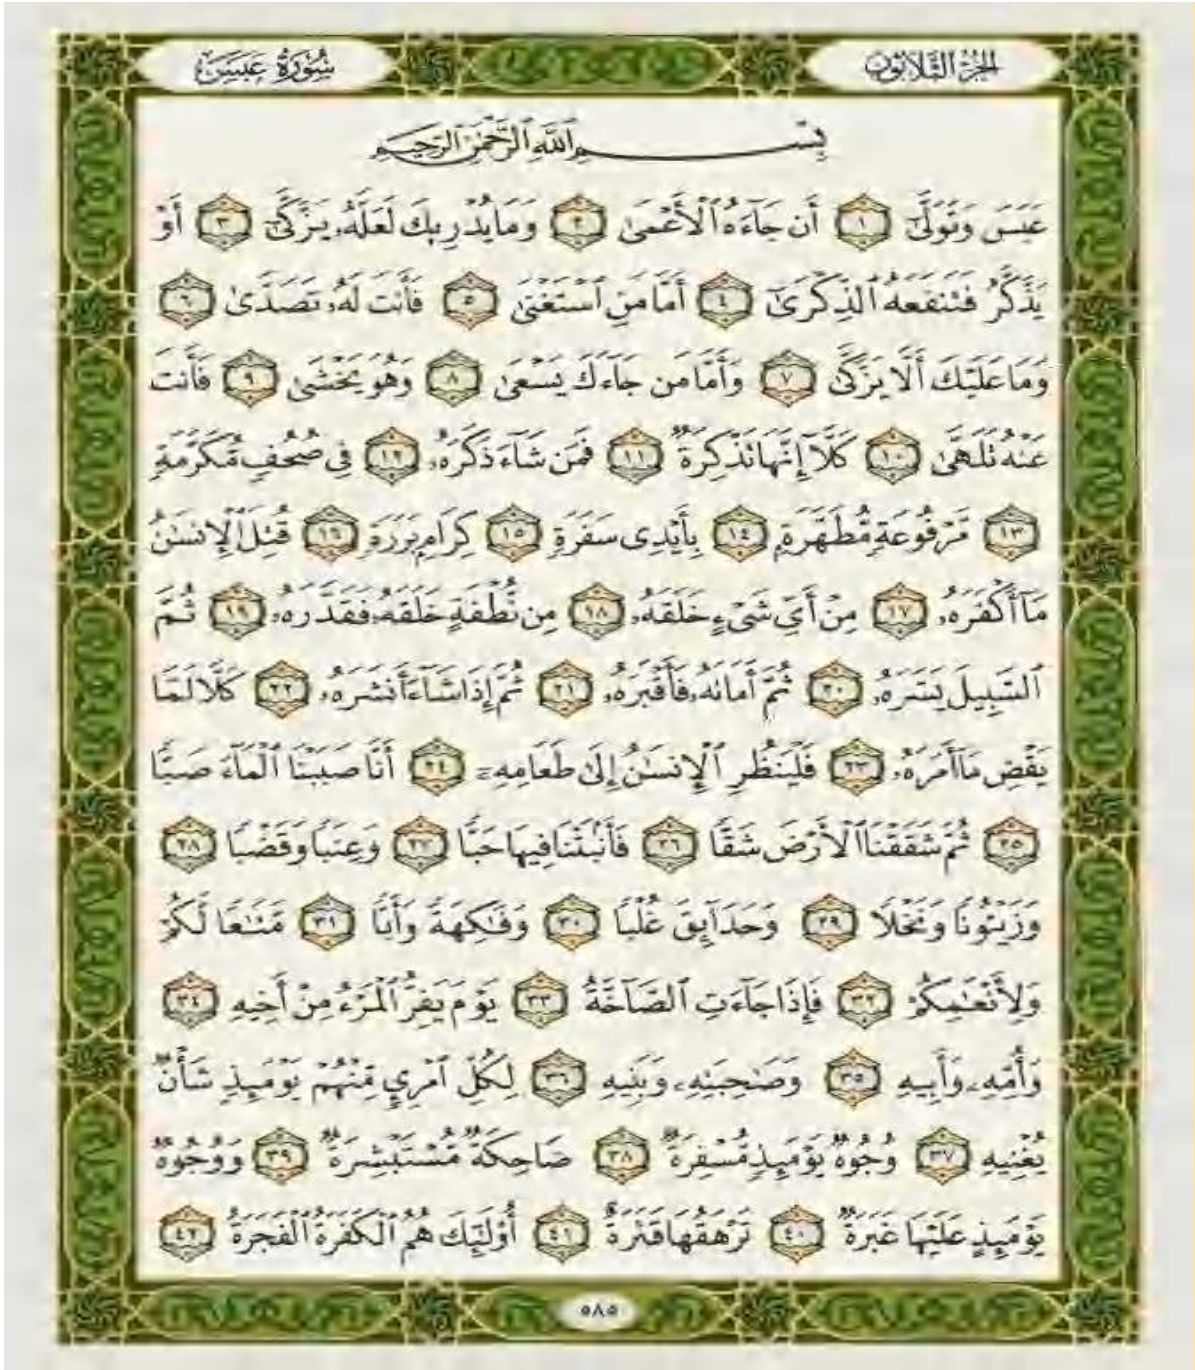 الجزء الثلاثون
سورة عبس
بسم الله الرحمن الرحيم
عَبَسَ وَتَوَلَّىٰٓ ١ أَن جَآءَهُ ٱلْأَعْمَىٰ ٢ وَمَا يُدْرِيكَ لَعَلَّهُۥ يَزَّكَّىٰٓ ٣ أَوْ
يَذَّكَّرُ فَتَنفَعَهُ ٱلذِّكْرَىٰٓ ٤ أَمَّا مَنِ ٱسْتَغْنَىٰ ٥ فَأَنتَ لَهُۥ تَصَدَّىٰ ٦
وَمَا عَلَيْكَ أَلَّا يَزَّكَّىٰ ٧ وَأَمَّا مَن جَآءَكَ يَسْعَىٰ ٨ وَهُوَ يَخْشَىٰ ٩ فَأَنتَ
عَنْهُ تَلَهَّىٰ ١٠ كَلَّآ إِنَّهَا تَذْكِرَةٌ ١١ فَمَن شَآءَ ذَكَرَهُۥ ١٢ فِى صُحُفٍ مُّكَرَّمَةٍ
١٣ مَّرْفُوعَةٍ مُّطَهَّرَةٍۭ ١٤ بِأَيْدِى سَفَرَةٍ ١٥ كِرَامٍۭ بَرَرَةٍ ١٦ قُتِلَ ٱلْإِنسَٰنُ
مَآ أَكْفَرَهُۥ ١٧ مِنْ أَىِّ شَىْءٍ خَلَقَهُۥ ١٨ مِن نُّطْفَةٍ خَلَقَهُۥ فَقَدَّرَهُۥ ١٩ ثُمَّ
ٱلسَّبِيلَ يَسَّرَهُۥ ٢٠ ثُمَّ أَمَاتَهُۥ فَأَقْبَرَهُۥ ٢١ ثُمَّ إِذَا شَآءَ أَنشَرَهُۥ ٢٢ كَلَّا لَمَّا
يَقْضِ مَآ أَمَرَهُۥ ٢٣ فَلْيَنظُرِ ٱلْإِنسَٰنُ إِلَىٰ طَعَامِهِۦٓ ٢٤ أَنَّا صَبَبْنَا ٱلْمَآءَ صَبًّا
٢٥ ثُمَّ شَقَقْنَا ٱلْأَرْضَ شَقًّا ٢٦ فَأَنۢبَتْنَا فِيهَا حَبًّا ٢٧ وَعِنَبًا وَقَضْبًا ٢٨
وَزَيْتُونًا وَنَخْلًا ٢٩ وَحَدَآئِقَ غُلْبًا ٣٠ وَفَٰكِهَةً وَأَبًّا ٣١ مَّتَٰعًا لَّكُمْ
وَلِأَنْعَٰمِكُمْ ٣٢ فَإِذَا جَآءَتِ ٱلصَّآخَّةُ ٣٣ يَوْمَ يَفِرُّ ٱلْمَرْءُ مِنْ أَخِيهِ ٣٤
وَأُمِّهِۦ وَأَبِيهِ ٣٥ وَصَٰحِبَتِهِۦ وَبَنِيهِ ٣٦ لِكُلِّ ٱمْرِئٍ مِّنْهُمْ يَوْمَئِذٍ شَأْنٌ
يُغْنِيهِ ٣٧ وُجُوهٌ يَوْمَئِذٍ مُّسْفِرَةٌ ٣٨ ضَاحِكَةٌ مُّسْتَبْشِرَةٌ ٣٩ وَوُجُوهٌ
يَوْمَئِذٍ عَلَيْهَا غَبَرَةٌ ٤٠ تَرْهَقُهَا قَتَرَةٌ ٤١ أُو۟لَٰٓئِكَ هُمُ ٱلْكَفَرَةُ ٱلْفَجَرَةُ ٤٢
٥٨٥